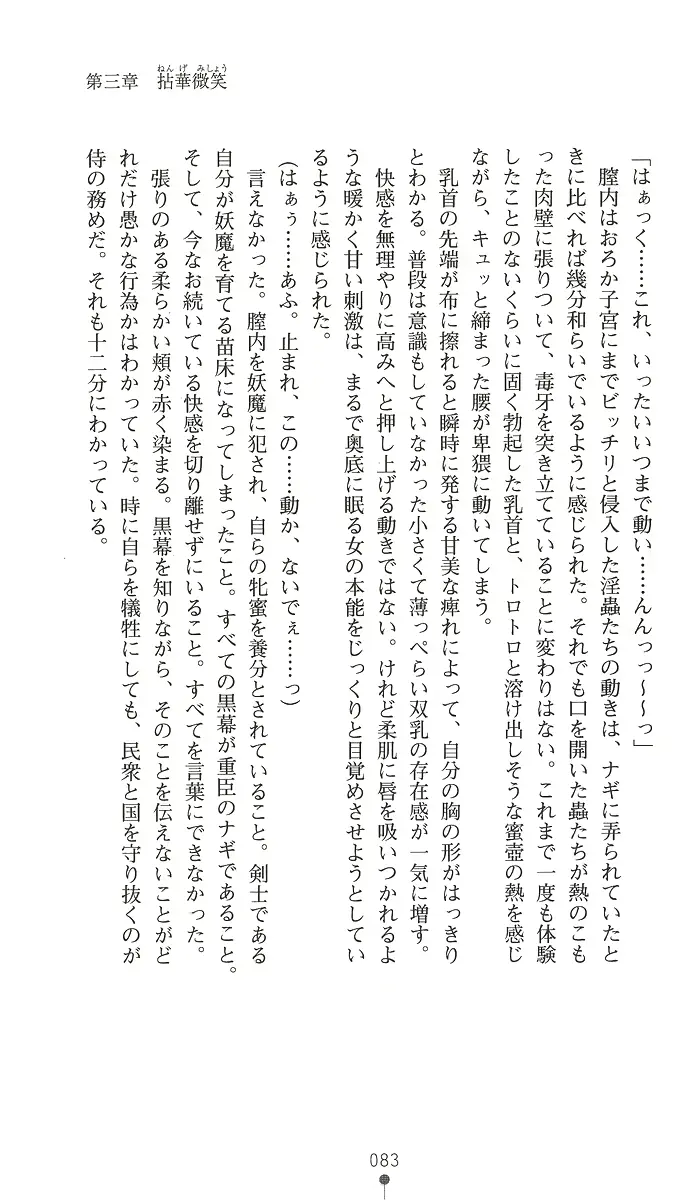 第三章　拈華微笑
ねんげ みしょう
「はぁっく……これ、いったいいつまで動い……んんっっ～～っ」
　膣内はおろか子宮にまでビッチリと侵入した淫蟲たちの動きは、ナギに弄られていたと
きに比べれば幾分和らいでいるように感じられた。それでも口を開いた蟲たちが熱のこも
った肉壁に張りついて、毒牙を突き立てていることに変わりはない。これまで一度も体験
したことのないくらいに固く勃起した乳首と、トロトロと溶け出しそうな蜜壺の熱を感じ
ながら、キュッと締まった腰が卑猥に動いてしまう。
　乳首の先端が布に擦れると瞬時に発する甘美な痺れによって、自分の胸の形がはっきり
とわかる。普段は意識もしていなかった小さくて薄っぺらい双乳の存在感が一気に増す。
　快感を無理やりに高みへと押し上げる動きではない。けれど柔肌に唇を吸いつかれるよ
うな暖かく甘い刺激は、まるで奥底に眠る女の本能をじっくりと目覚めさせようとしてい
るように感じられた。
（はぁぅ……あふ。止まれ、この……動か、ないでぇ……っ）
　言えなかった。膣内を妖魔に犯され、自らの牝蜜を養分とされていること。剣士である
自分が妖魔を育てる苗床になってしまったこと。すべての黒幕が重臣のナギであること。
そして、今なお続いている快感を切り離せずにいること。すべてを言葉にできなかった。
　張りのある柔らかい頬が赤く染まる。黒幕を知りながら、そのことを伝えないことがど
れだけ愚かな行為かはわかっていた。時に自らを犠牲にしても、民衆と国を守り抜くのが
侍の務めだ。それも十二分にわかっている。
083